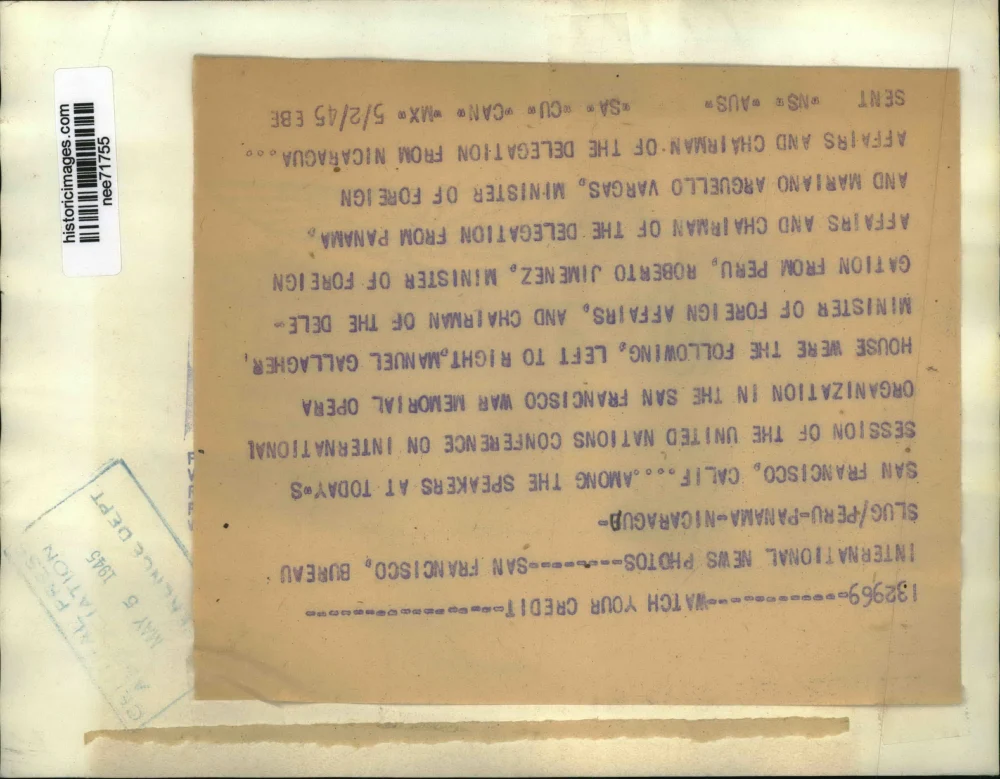 I32969---------------WATCH YOUR CREDIT-------------------
INTERNATIONAL NEWS PHOTOS---------SAN FRANCISCO, BUREAU
SLUG/PERU-PANAMA-NICARAGUA-
SAN FRANCISCO, CALIF....AMONG THE SPEAKERS AT TODAY"S
SESSION OF THE UNITED NATIONS CONFERENCE ON INTERNATIONAL
ORGANIZATION IN THE SAN FRANCISCO WAR MEMORIAL OPERA
HOUSE WERE THE FOLLOWING, LEFT TO RIGHT,MANUEL GALLAGHER,
MINISTER OF FOREIGN AFFAIRS, AND CHAIRMAN OF THE DELE-
GATION FROM PERU, ROBERTO JIMENEZ, MINISTER OF FOREIGN
AFFAIRS AND CHAIRMAN OF THE DELEGATION FROM PANAMA,
AND MARIANO ARGUELLO VARGAS, MINISTER OF FOREIGN
AFFAIRS AND CHAIRMAN OF THE DELEGATION FROM NICARAGUA....
SENT "NS" "AUS" "SA" "CU" "CAN" "MX" 5/2/45 EBE
historicimages.com
nee71755
MAY 5 1945
DEPT